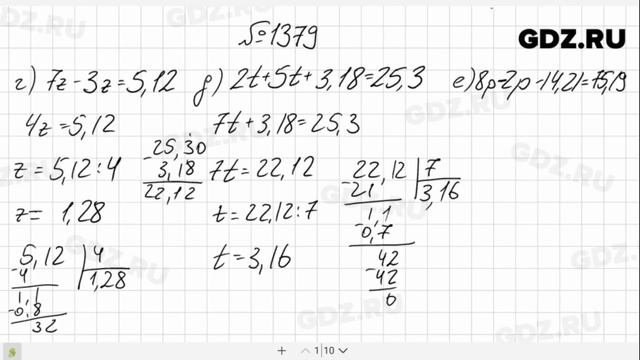 №1379
GDZ.RU
г) 7z - 3z = 5,12
4z = 5,12
z = 5,12 : 4
z = 1,28
5,12 | 4
-4
1,28
1,1
-0,8
32
д) 2t + 5t + 3,18 = 25,3
7t + 3,18 = 25,3
25,30
- 3,18
22,12
7t = 22,12
t = 22,12 : 7
t = 3,16
22,12 | 7
-21
3,16
1,1
-0,7
42
-42
0
е) 8p - 2p - 14,21 = 75,19
1 10